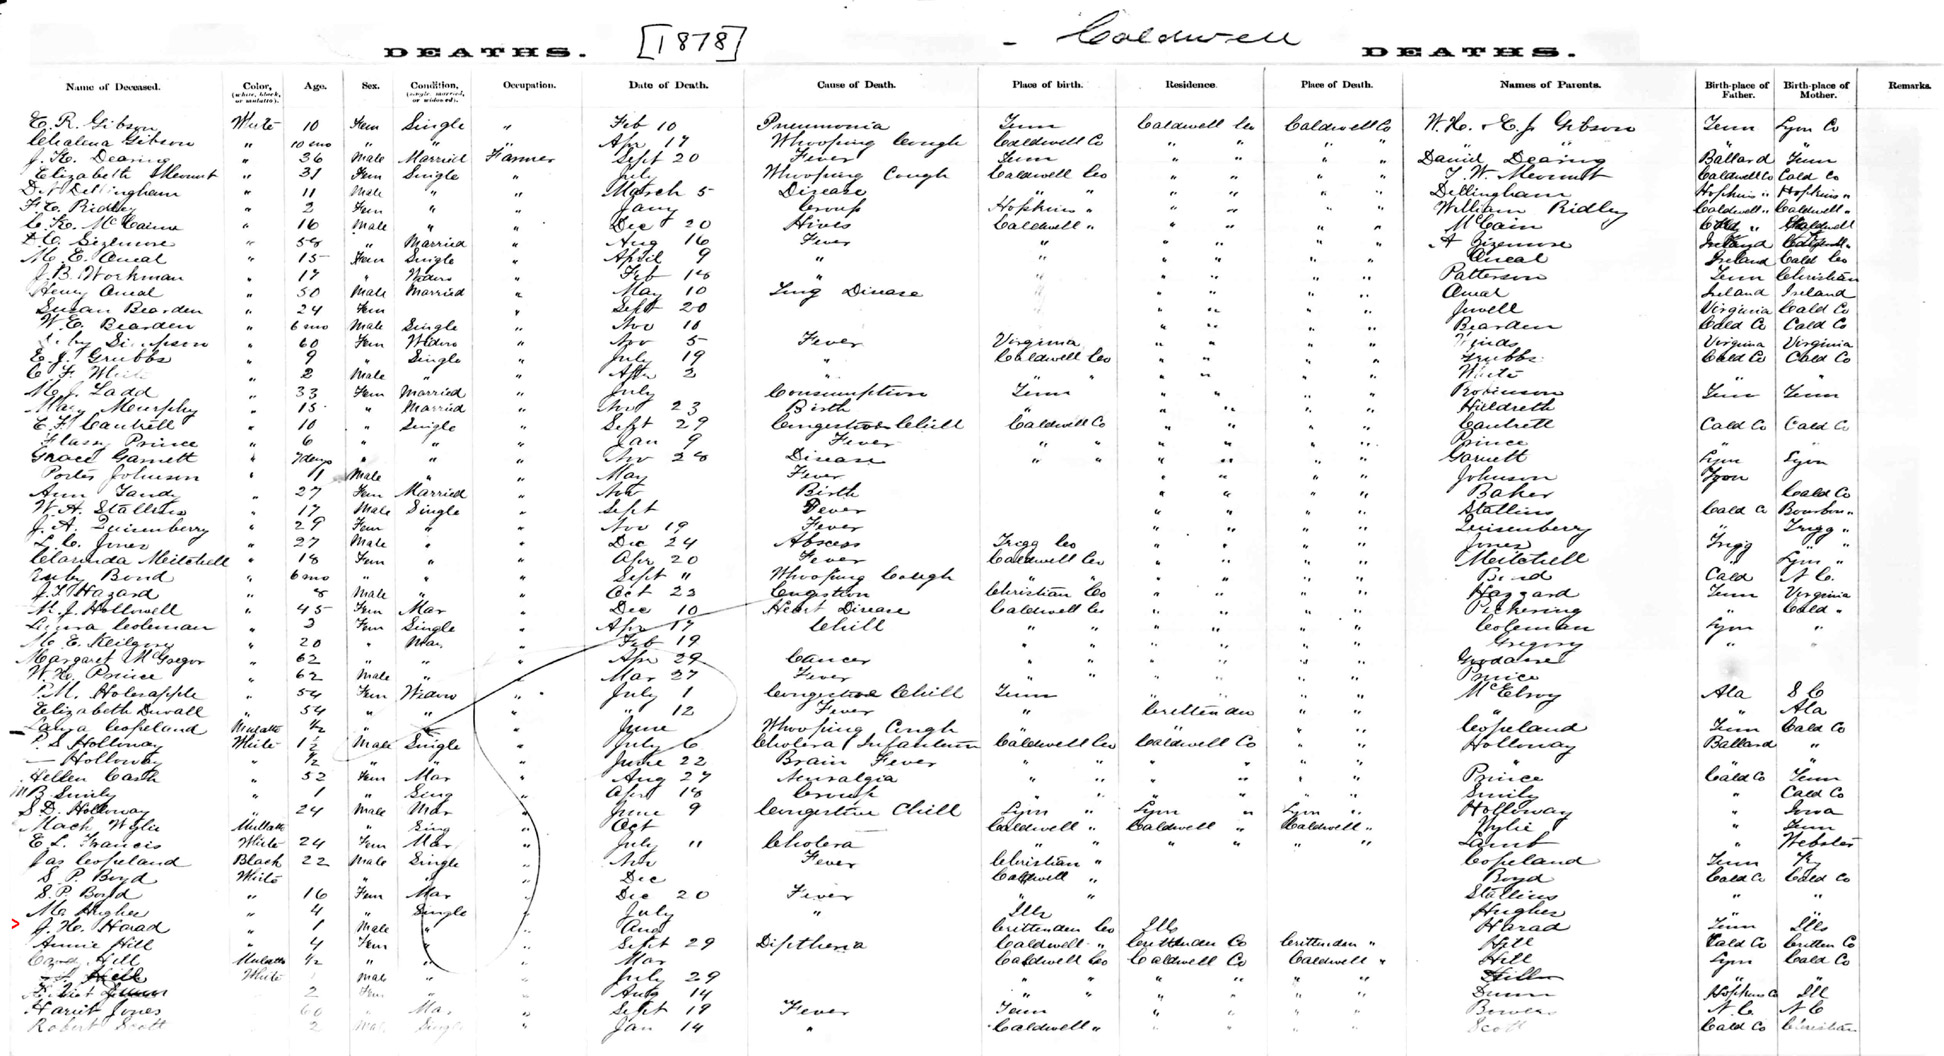 DEATHS. [1878] - Caldwell DEATHS.
Name of Deceased. Color, (white, black, or mulatto). Age. Sex. Condition, (single, married, or widowed). Occupation. Date of Death. Cause of Death. Place of birth. Residence. Place of Death. Names of Parents. Birth-place of Father. Birth-place of Mother. Remarks.
E. R. Gibson White 10 Fem Single " Feb 10 Pneumonia Tenn Caldwell Co Caldwell Co W. H. & E. J. Gibson Tenn Lyon Co
Gibson " 10 mo " " " Apr 17 Whooping Cough Caldwell Co " " " " " "
J. H. Dearing " 36 Male Married Farmer Sept 20 Fever Tenn " " " " David Dearing Ballard Tenn
Elizabeth Mount " 31 Fem Single " July Whooping Cough Caldwell Co " " " " T. W. Mount Caldwell Co Cald Co
Dillingham " 11 Male " " March 5 Disease " " " " " " Dillingham Hopkins " Hopkins "
F. C. Ridley " 2 Fem " " Jany Croup Hopkins " " " " " William Ridley Caldwell " Caldwell "
C. H. McCain " 16 Male " " Dec 20 Hives Caldwell " " " " " McCain " Caldwell
Sizemore " 58 " Married " Aug 16 Fever " " " " " A Sizemore Ireland Caldwell "
M. E. Oneal " 15 Fem Single " April 9 " " " " " " Oneal Ireland Cald Co
J. B. Workman " 17 " Widow " Feb 18 " " " " " " Patterson Tenn Christian
Henry Oneal " 50 Male Married " May 10 Lung Disease " " " " " Oneal Ireland Ireland
Susan Bearden " 24 Fem " Sept 20 " " " " " Jewell Virginia Cald Co
W. E. Bearden " 6 mo Male Single " Nov 10 " " " " Bearden Cald Co Cald Co
Simpson " 60 Fem Widow " Nov 5 Fever Virginia " " " " Virginia Virginia
E. J. Grubbs " 9 " Single " July 19 " Caldwell Co " " " " Grubbs Cald Co Cald Co
C. F. White " 2 Male " " Apr 2 " " " " " " " White " "
M. J. Ladd " 33 Fem Married " July Consumption Tenn " " " " Robinson Tenn Tenn
Mary Murphy " 15 " Married " Nov 23 Birth " " " " " Hildreth
E. F. Cantrell " 10 " Single " Sept 29 Congestive Chill Caldwell Co " " " " Cantrell Cald Co Cald Co
Prince " 6 " " " Jan 9 Fever " " " " " " Prince " "
Grace Garnett " 7 days " " " Nov 28 Disease " " " " " " Garnett Lyon Lyon
Porter Johnson " 11 Male " May Fever " " " " Johnson Lyon
Ann Tandy " 27 Fem Married " Nov Birth " " " " Baker Cald Co
W. H. Stallins " 17 Male Single " Sept Fever " " " " Stallins Cald C Bourbon "
J. A. Quisenberry " 29 Fem " " Nov 19 Fever " " " " Quisenberry " Trigg "
L. C. Jones " 27 Male " " Dec 24 Abscess Trigg Co " " " " Jones Trigg "
Clarinda Mitchell " 18 Fem " " Apr 20 Fever Caldwell Co " " " " Mitchell " Lyon "
Ruby Bond " 6 mo " " " Sept " Whooping Cough " " " " " " Bond Cald N. C.
J. T. Hazard " 8 Male " " Oct 23 Congestion Christian Co " " " " Hazzard Tenn Virginia
M. J. Hollowell " 45 Fem Mar " Dec 10 Heart Disease Caldwell Co " " " " Pickering " Cald "
Coleman " 3 Fem Single " Apr 17 Chill " " " " " " Coleman Lyon "
M. E. " 20 " Mar " Feb 19 " " " " " " Gregory " "
Margaret McGregor " 62 " " " Apr 29 Cancer " " " " " "
W. H. Prince " 62 Male " " Mar 27 Fever " " " " " " Prince
P. M. Holeapple " 54 Fem Widow " July 1 Congestive Chill Tenn " " " " McElroy Ala S C
Elizabeth Duvall " 54 " " " " 12 Fever Crittenden " " " " Ala
Copeland Mulatto 1/2 " " " June Whooping Cough " " " Copeland Tenn Cald Co
P. S. Holloway White 1 1/2 Male Single " July 6 Cholera Infantum Caldwell Co Caldwell Co " " Holloway Ballard "
— Holloway " 1/2 " " " June 22 Brain Fever " " " " " " "
Hellen Cash " 52 Fem Mar " Aug 27 Neuralgia " " " " " " Prince Cald Co Tenn
M B Smily " 1 " Sing " Apr 18 Croup " " " " " " Smily " Cald Co
S. D. Holloway " 24 Male Mar " June 9 Congestive Chill Lyon " Lyon " Lyon " Holloway " Iowa
Mach Wylie Mullatto " Sing " Oct Caldwell " Caldwell " Caldwell " Wylie " Tenn
E. L. Francis White 24 Fem Mar " July " Cholera " " " " " " Lamb " Webster
Jas Copeland Black 22 Male Single " Nov Fever Christian " Copeland Tenn Ky
S. P. Boyd White " " " Dec Caldwell " Boyd Cald Co Cald Co
S. P. Boyd " 16 Fem Mar " Dec 20 Fever " " Stallins " "
M. Hughes " 4 " Single " July " Ills Hughes " "
J. H. Harad " 1 Male " " Aug Crittenden Co Ills Harad Tenn Ills
Annie Hill " 4 Fem " " Sept 29 Diptheria Caldwell " Crittenden Co Crittenden " Hill Cald Co Critten Co
Hill Mulatto 1/2 " " " Mar Caldwell Co Caldwell Co Caldwell " Hill Lyon Cald Co
Hill White Male " " July 29 " " " " " " Hill " "
2 Fem " " Aug 14 " " " " " " Dunn Hopkins Co Ill
Hariet Jones 60 " Mar " Sept 19 Fever Tenn " " " " Bowers N. C. N C
Robert Scott 2 Male Single " Jan 14 " Caldwell " " " " " Scott Cald Co Christian